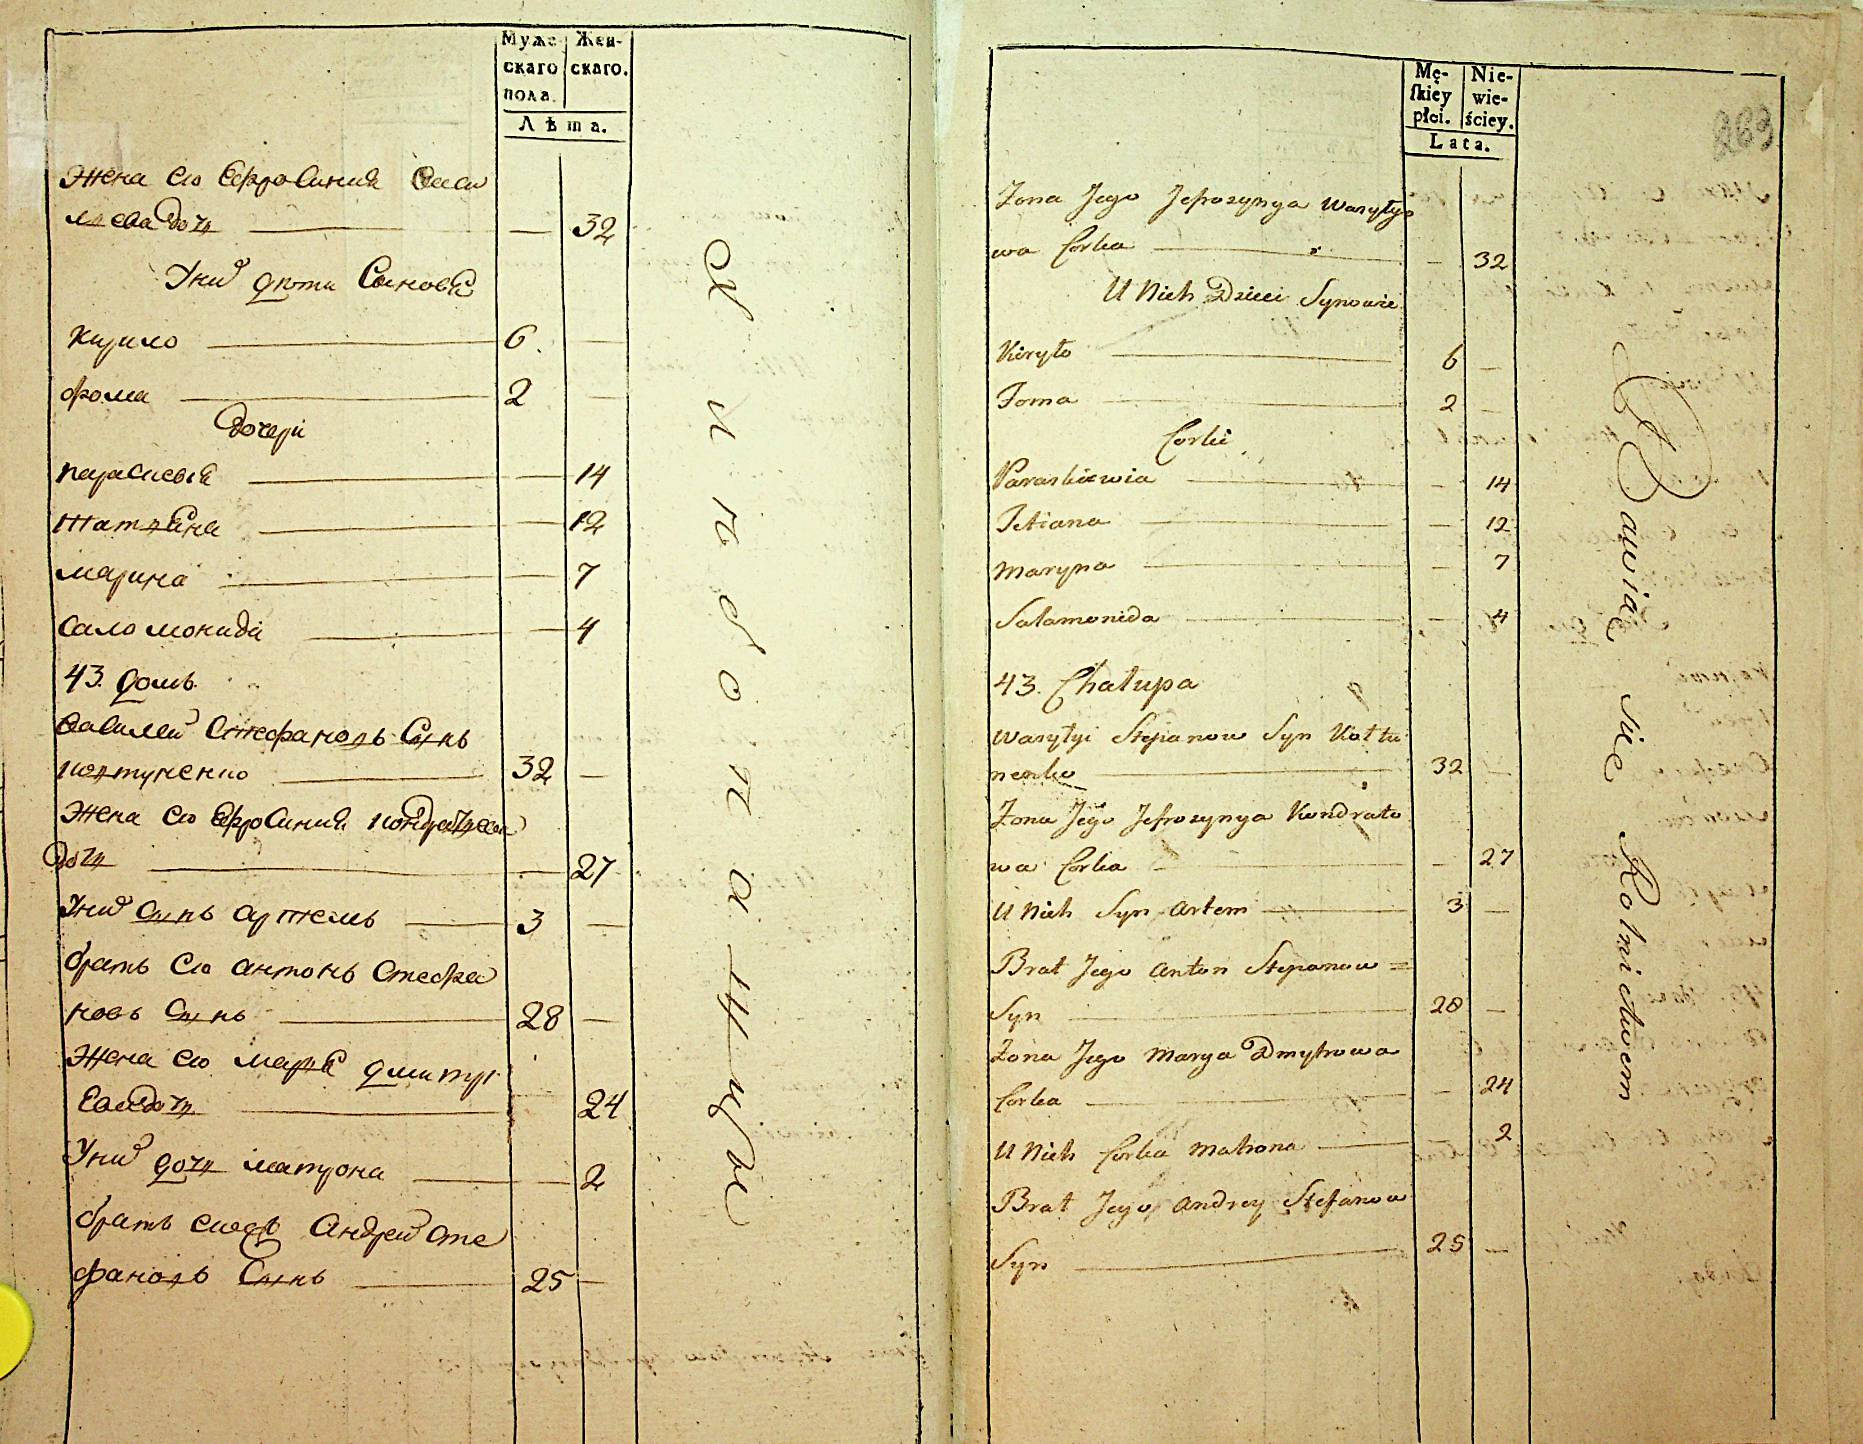 Муже-
скаго
пола.
Жен-
скаго.
Лѣта.
Жена его Ефросиния Васи
лієва дочь — 32
У них дѣти Сыновѣ
Кирило 6. —
Фома 2 —
дочери
Параскевія — 14
Татьяна — 12
Марина — 7
Саломонида — 4
43. домъ.
Василей Стефановъ Сынъ
Колтуненко 32 —
Жена его Ефросиния Кондратьева
дочь — 27
У них Сынъ Артемъ 3 —
братъ его Антонъ Стефа
новъ Сынъ 28 —
Жена его Марья Дмитри
ева дочь — 24
У них дочь Матрона — 2
братъ Андрей Сте
фановъ Сынъ 25 —
Хлебопашцы
Mę-
ſkiey
płci.
Nie-
wie-
ściey.
Lata.
263
Żona Jego Jefrozynya Wasyłyo
wa Corka — 32
U Nich Dzieci Synowie
Kiryło 6 —
Foma 2 —
Corki
Paraskiewia — 14
Tetiana — 12
Maryna — 7
Salamonida — 4
43. Chałupa
Wasyłyi Stepanow Syn Kołtu
nenko 32 —
Żona Jego Jefrozynya Kondrato
wa Corka — 27
U Nich Syn Artem 3 —
Brat Jego Anton Stepanow =
Syn 28 —
Żona Jego Marya Dmytrowa
Corka — 24
U Nich Corka Matrona 2
Brat Jego Andrey Stefanow
Syn 25 —
Bawią się Rolnictwem